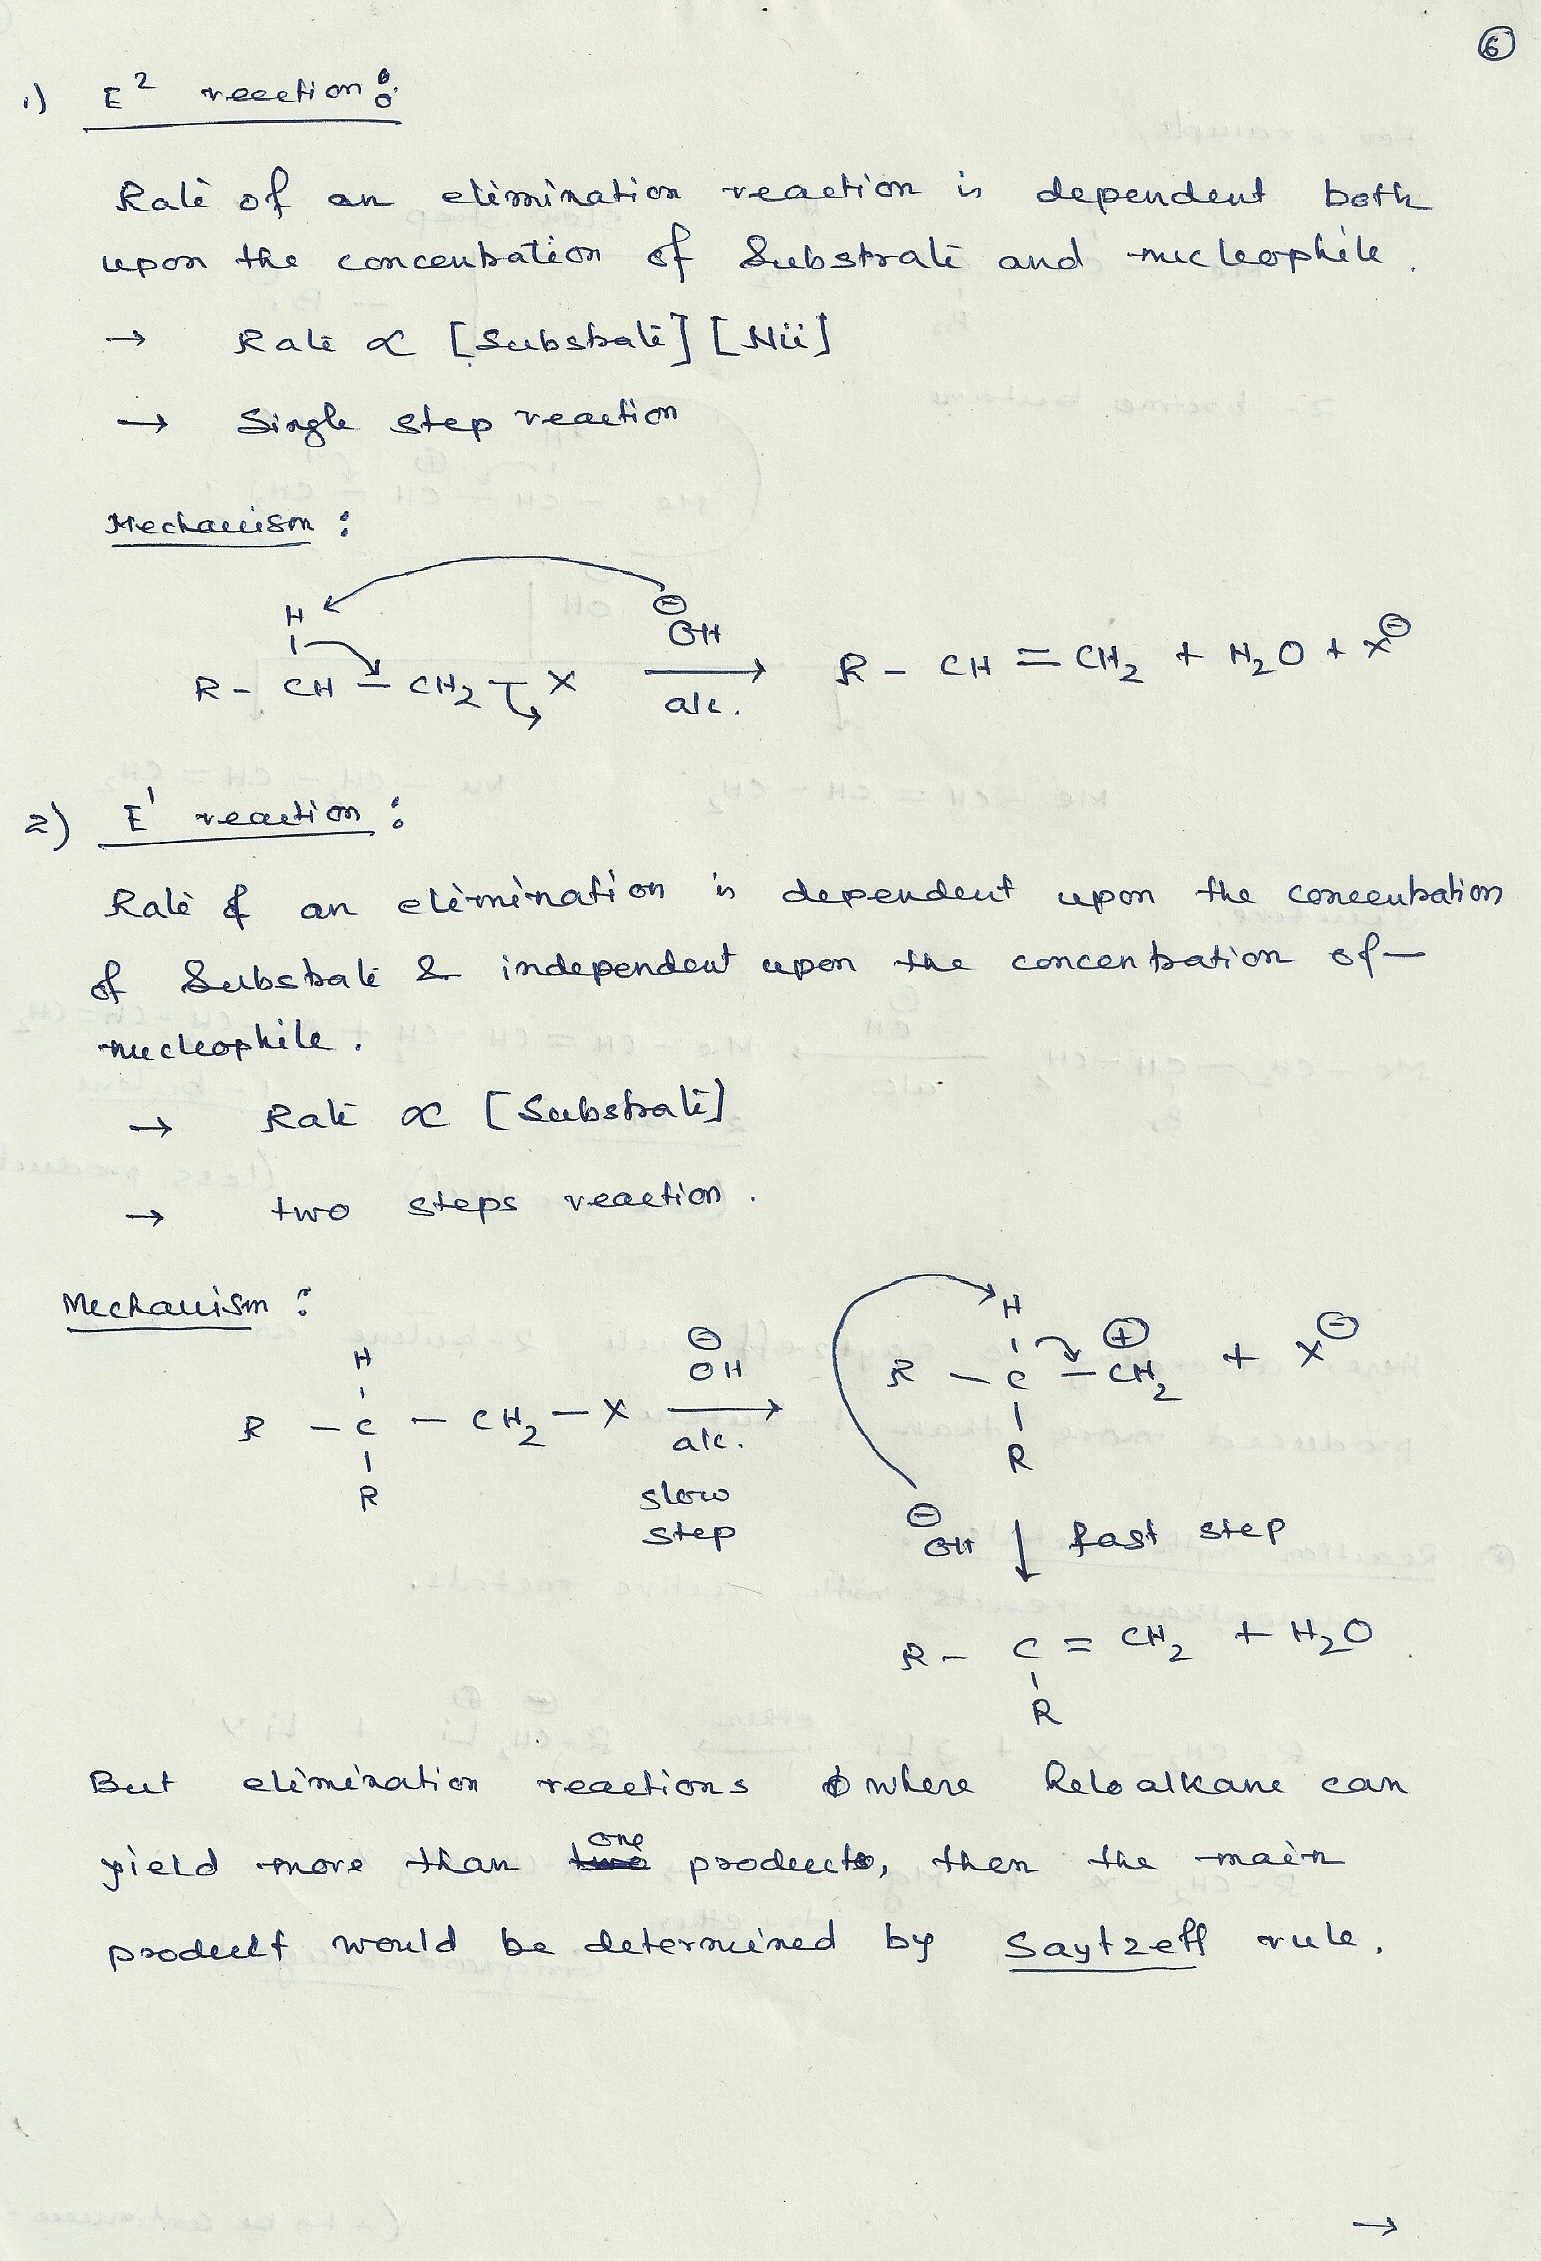 6
1) E² reaction :
Rate of an elimination reaction is dependent both
upon the concentration of Substrate and nucleophile.
→ Rate ∝ [Substrate] [Nü]
→ Single step reaction
Mechanism :
H ⊖OH
R - CH - CH₂ - X → alc. R - CH = CH₂ + H₂O + X⊖
2) E¹ reaction :
Rate of an elimination is dependent upon the concentration
of Substrate & independent upon the concentration of
nucleophile.
→ Rate ∝ [Substrate]
→ two steps reaction.
Mechanism :
H ⊖OH H ⊕
R - C - CH₂ - X → alc. R - C - CH₂ + X⊖
R slow step R
⊖OH ↓ fast step
R - C = CH₂ + H₂O
R
But elimination reactions where Haloalkane can
yield more than one product, then the main
product would be determined by Saytzeff rule.
→